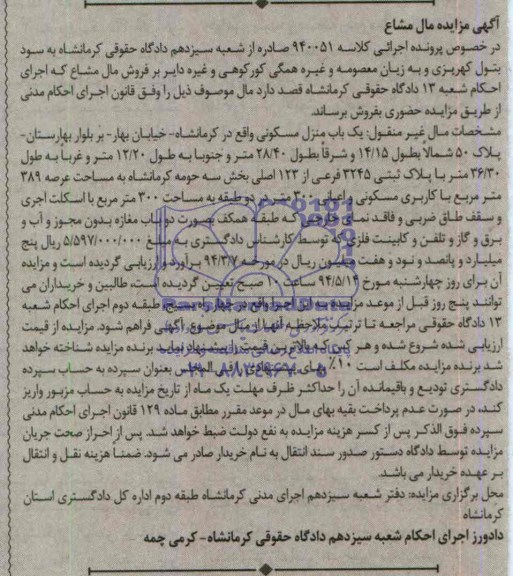 آگهی مزایده مال مشاع
در خصوص پرونده اجرائی کلاسه ۹۴۰۰۵۱ صادره از شعبه سیزدهم دادگاه حقوقی کرمانشاه به سود
بتول کهریزی و به زیان معصومه و غیره همگی کورکوهی و غیره دایر بر فروش مال مشاع که اجرای
احکام شعبه ۱۳ دادگاه حقوقی کرمانشاه قصد دارد مال موصوف ذیل را وفق قانون اجرای احکام مدنی
از طریق مزایده حضوری بفروش برساند.
مشخصات مال غیر منقول: یک باب منزل مسکونی واقع در کرمانشاه- خیابان بهار- بر بلوار بهارستان-
پلاک ۵۰ شمالاً بطول ۱۴/۱۵ و شرقاً بطول ۲۸/۴۰ متر و جنوبا به طول ۱۲/۲۰ متر و غربا به طول
۳۶/۳۰ متر با پلاک ثبتی ۳۲۴۵ فرعی از ۱۲۳ اصلی بخش سه حومه کرمانشاه به مساحت عرصه ۳۸۹
متر مربع با کاربری مسکونی و اعیانی ۳۰۰ متر در دو طبقه به مساحت ۳۰۰ متر مربع با اسکلت اجری
و سقف طاق ضربی و فاقد نمای خارجی که طبقه همکف بصورت دو باب مغازه بدون مجوز و آب و
برق و گاز و تلفن و کابینت فلزی که توسط کارشناس دادگستری به مبلغ ۵/۵۹۷/۰۰۰/۰۰۰ ریال پنج
میلیارد و پانصد و نود و هفت میلیون ریال در مورخه ۹۴/۳/۷ برآورد و ارزیابی گردیده است و مزایده
آن برای روز چهارشنبه مورخ ۹۴/۵/۱۴ ساعت ۱۰ صبح تعیین گردیده است، طالبین و خریداران می
توانند پنج روز قبل از موعد مزایده به این اجرا واقع در چهار راه بسیج، طبقه دوم اجرای احکام شعبه
۱۳ دادگاه حقوقی مراجعه تا ترتیب ملاحظه آنها از مال موضوع آگهی فراهم شود. مزایده از قیمت
ارزیابی شده شروع شده و هر کس که بالاترین قیمت را پیشنهاد نماید برنده مزایده شناخته خواهد
شد برنده مزایده مکلف است ۱۰٪ بهای پیشنهادی را فی المجلس بعنوان سپرده به حساب سپرده
دادگستری تودیع و باقیمانده آن را حداکثر ظرف مهلت یک ماه از تاریخ مزایده به حساب مزبور واریز
کند، در صورت عدم پرداخت بقیه بهای مال در موعد مقرر مطابق ماده ۱۲۹ قانون اجرای احکام مدنی
سپرده فوق الذکر پس از کسر هزینه مزایده به نفع دولت ضبط خواهد شد. پس از احراز صحت جریان
مزایده توسط دادگاه دستور صدور سند انتقال به نام خریدار صادر می شود. ضمنا هزینه نقل و انتقال
بر عهده خریدار می باشد.
محل برگزاری مزایده: دفتر شعبه سیزدهم اجرای مدنی کرمانشاه طبقه دوم اداره کل دادگستری استان
کرمانشاه
دادورز اجرای احکام شعبه سیزدهم دادگاه حقوقی کرمانشاه- کرمی چمه